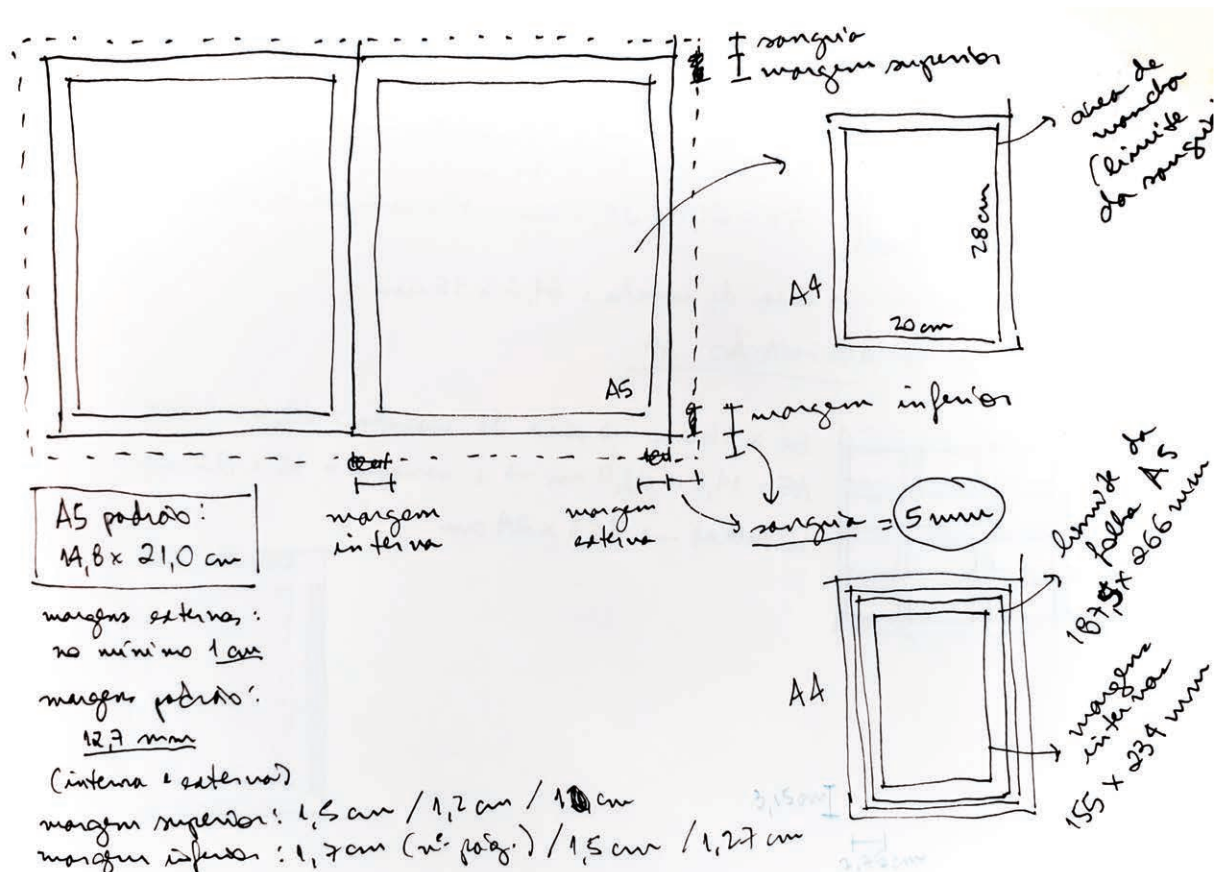 sangria
margem superior
área de
mancha
(limite
da sangria
28 cm
A4
20 cm
A5
margem inferior
margem
interna
margem
externa
sangria = 5 mm
A5 padrão:
14,8 x 21,0 cm
margens externas:
no mínimo 1 cm
margens padrão:
12,7 mm
(interna e externa)
margem superior: 1,5 cm / 1,2 cm / 1 cm
margem inferior: 1,7 cm (nº pág.) / 1,5 cm / 1,27 cm
limite da
folha A5
187,5 x 266 mm
A4
margens
internas
155 x 234 mm
3,15cm